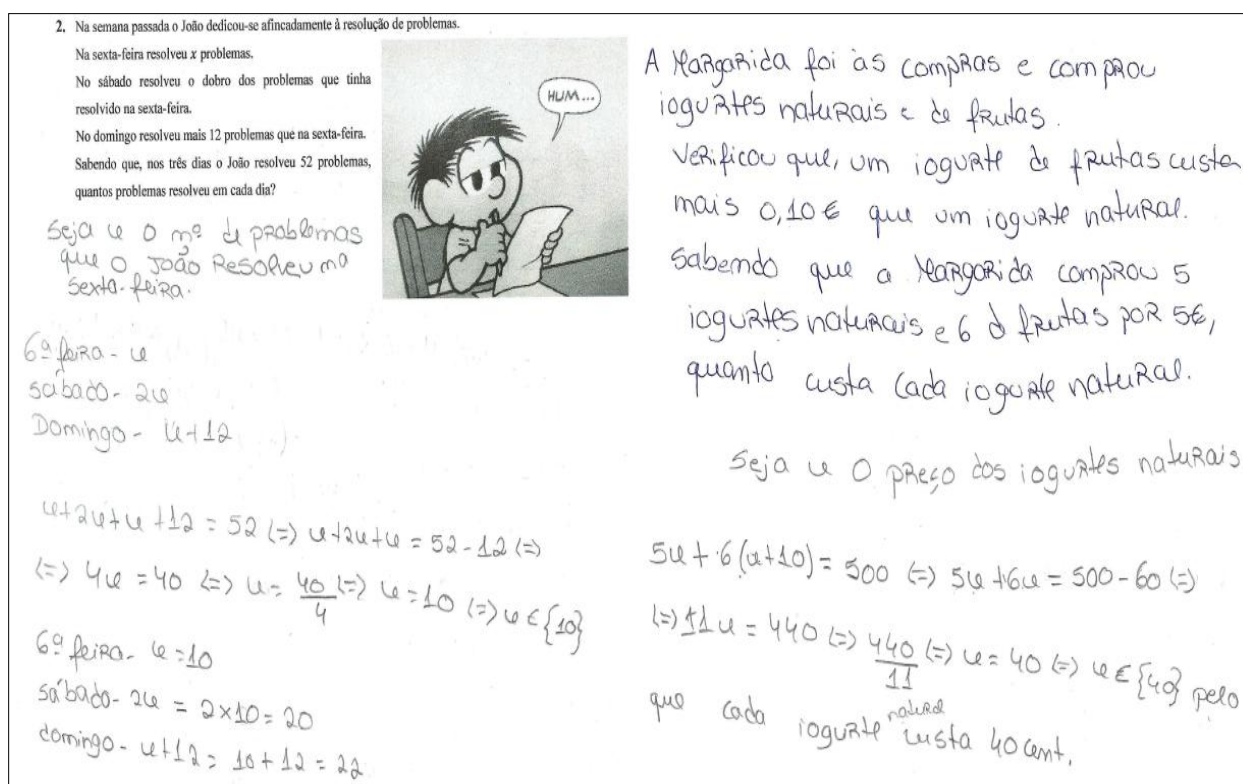 2. Na semana passada o João dedicou-se afincadamente à resolução de problemas.
Na sexta-feira resolveu x problemas.
No sábado resolveu o dobro dos problemas que tinha
resolvido na sexta-feira.
No domingo resolveu mais 12 problemas que na sexta-feira.
Sabendo que, nos três dias o João resolveu 52 problemas,
quantos problemas resolveu em cada dia?
HUM...
Seja x o nº de problemas
que o João Resolveu na
sexta-feira.
6ª feira - x
sábado - 2x
Domingo - x+12
x+2x+x+12 = 52 (=) x+2x+x = 52-12 (=)
(=) 4x = 40 (=) x = 40/4 (=) x = 10 (=) x ∈ {10}
6ª feira - x = 10
sábado - 2x = 2×10 = 20
domingo - x+12 = 10+12 = 22
A Margarida foi às compras e comprou
iogurtes naturais e de frutas.
Verificou que, um iogurte de frutas custa
mais 0,10€ que um iogurte natural.
Sabendo que a Margarida comprou 5
iogurtes naturais e 6 d frutas por 5€,
quanto custa cada iogurte natural.
Seja x o preço dos iogurtes naturais
5x + 6(x+10) = 500 (=) 5x+6x = 500-60 (=)
(=) 11x = 440 (=) 440/11 (=) x = 40 (=) x ∈ {40} pelo
que cada iogurte natural custa 40 cent.